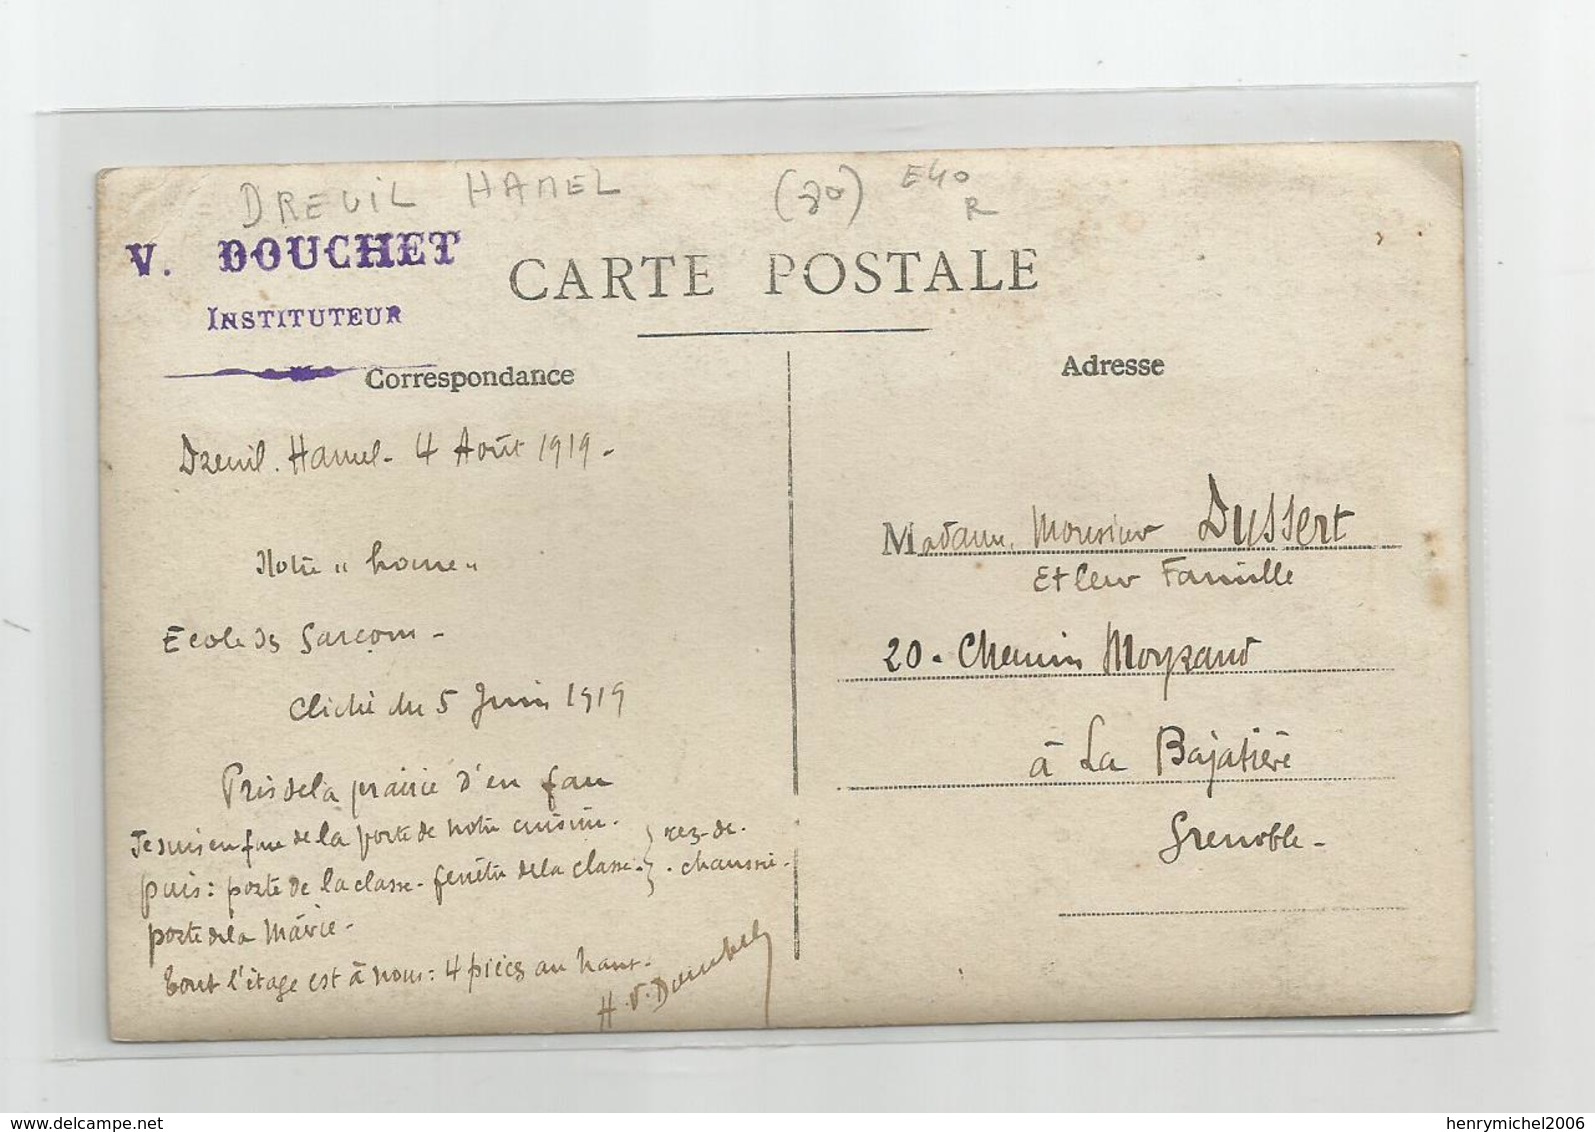 DREUIL HAMEL (80) E40
R
V. DOUCHET
INSTITUTEUR
CARTE POSTALE
Correspondance
Adresse
Dreuil. Hamel - 4 Août 1919 -
Notre " home "
Ecole des Garçons -
Cliché du 5 Juin 1919
Pris de la prairie d'en face
Je suis en face de la porte de notre cuisine.
puis : porte de la classe - fenêtre de la classe - } rez-de-
chaussée.
porte de la Mairie -
Tout l'étage est à nous : 4 pièces au haut.
H. V. Douchet
Madame, Monsieur Dussert
Et leur Famille
20 - Chemin Moyrand
à La Bajatière
Grenoble -
delcampe.net
henrymichel2006